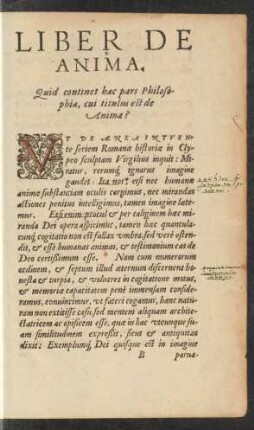 LIBER DE
ANIMA.
Quid continet hæc pars Philoso-
phiæ, cui titulus est de
Anima?
VT DE ÆNEA INTVEN-
te seriem Romanæ historiæ in Cly-
peo sculptam Virgilius inquit: Mi-
ratur, rerumq́; ignarus imagine
gaudet: Ita nos etsi nec humanæ
animæ substantiam oculis cernimus, nec mirandas
actiones penitus intelligimus, tamen imagine læte-
mur. Etsi enim procul & per caliginem hæc mi-
randa Dei opera aspicimus, tamen hæc quantula-
cunq́; cogitatio non est fallax umbra, sed verè osten-
dit, & esse humanas animas, & testimonium eas de
Deo certissimum esse. Nam cum numerorum
ordinem, & septum illud æternum discernens ho-
nesta & turpia, & volucres in cogitatione motus,
& memoriæ capacitatem penè immensam conside-
ramus, convincimur, ut fateri cogamur, hanc natu-
ram non extitisse casu, sed mentem aliquam archi-
tectatricem ac opificem esse, quæ in hac utcunque su-
am similitudinem expressit, sicut & antiquitas
dixit: Exemplumq́; Dei quisque est in imagine
B parua.